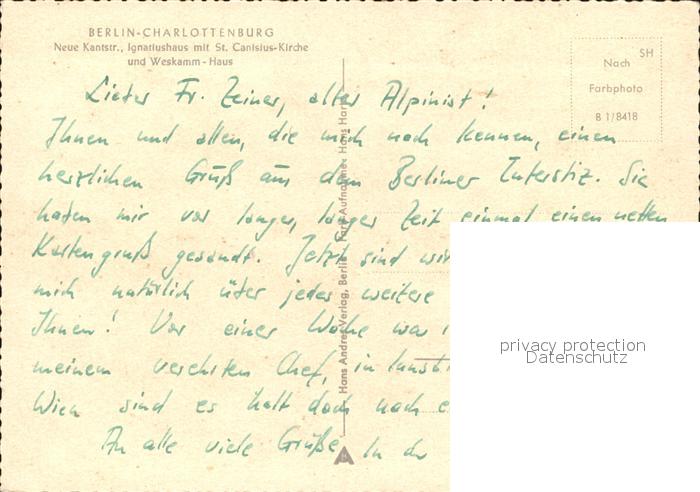 BERLIN-CHARLOTTENBURG
Neue Kantstr., Ignatiushaus mit St. Canisius-Kirche
und Weskamm-Haus
SH
Nach
Farbphoto
B 1/8418
Lieber Fr. Zeiner, alter Alpinist!
Ihnen und allen, die mich noch kennen, einen
herzlichen Gruß aus dem Berliner Interstiz. Sie
haben mir vor langer, langer Zeit einmal einen netten
Kartengruß gesandt. Jetzt sind wir
mich natürlich über jedes weitere
Ihnen! Vor einer Woche war i
meinem verehrten Chef, in Innsb
Wien sind es halt doch noch e
An alle viele Grüße In d
Hans Andres Verlag, Berlin Farb-Aufnahme: Hans Har
privacy protection
Datenschutz